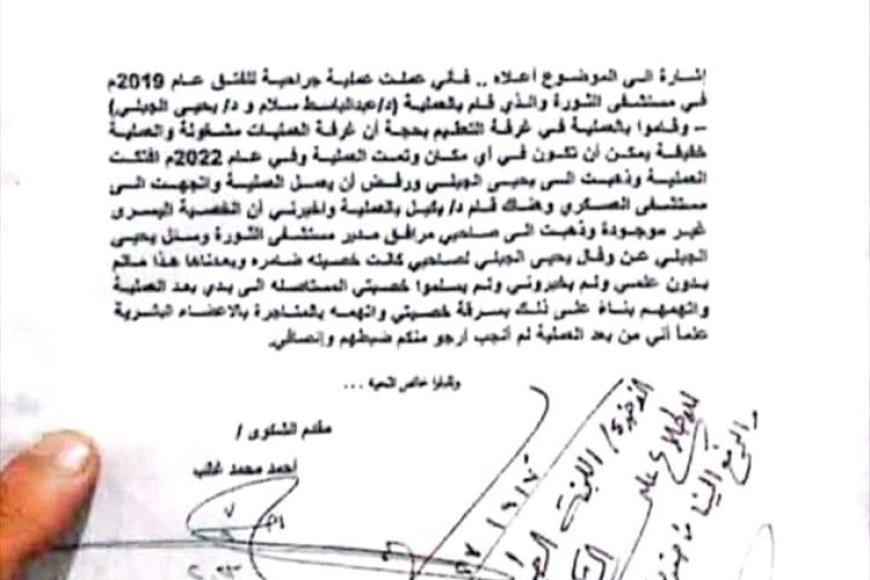 إشارة الى الموضوع أعلاه .. فأني عملت عملية جراحية للفتق عام 2019م
في مستشفى الثورة والذي قام بالعملية (د/عبدالباسط سلام و د/ يحيى الجبلي)
– وقاموا بالعملية في غرفة التعقيم بحجة أن غرفة العمليات مشغولة والعملية
خفيفة يمكن أن تكون في أي مكان وتمت العملية وفي عام 2022م افتكت
العملية وذهبت الى يحيى الجبلي ورفض أن يعمل العملية واتجهت الى
مستشفى العسكري وهناك قام د/ بكيل بالعملية واخبرني أن الخصية اليسرى
غير موجودة وذهبت الى صاحبي مرافق مدير مستشفى الثورة وسئل يحيى
الجبلي عن وقال يحيى الجبلي لصاحبي كانت خصيته ضامره وبعدناها هذا ماتم
بدون علمي ولم يخبروني ولم يسلموا خصيتي المستاصله الى يدي بعد العملية
واتهمهم بناءً على ذلك بسرقة خصيتي واتهمه بالمتاجرة بالاعضاء البشرية
علماً أني من بعد العملية لم أنجب أرجو منكم ضبطهم وإنصافي.
وتقبلوا خالص التحية ...
مقدم الشكوى /
احمد محمد غالب
للاطلاع على